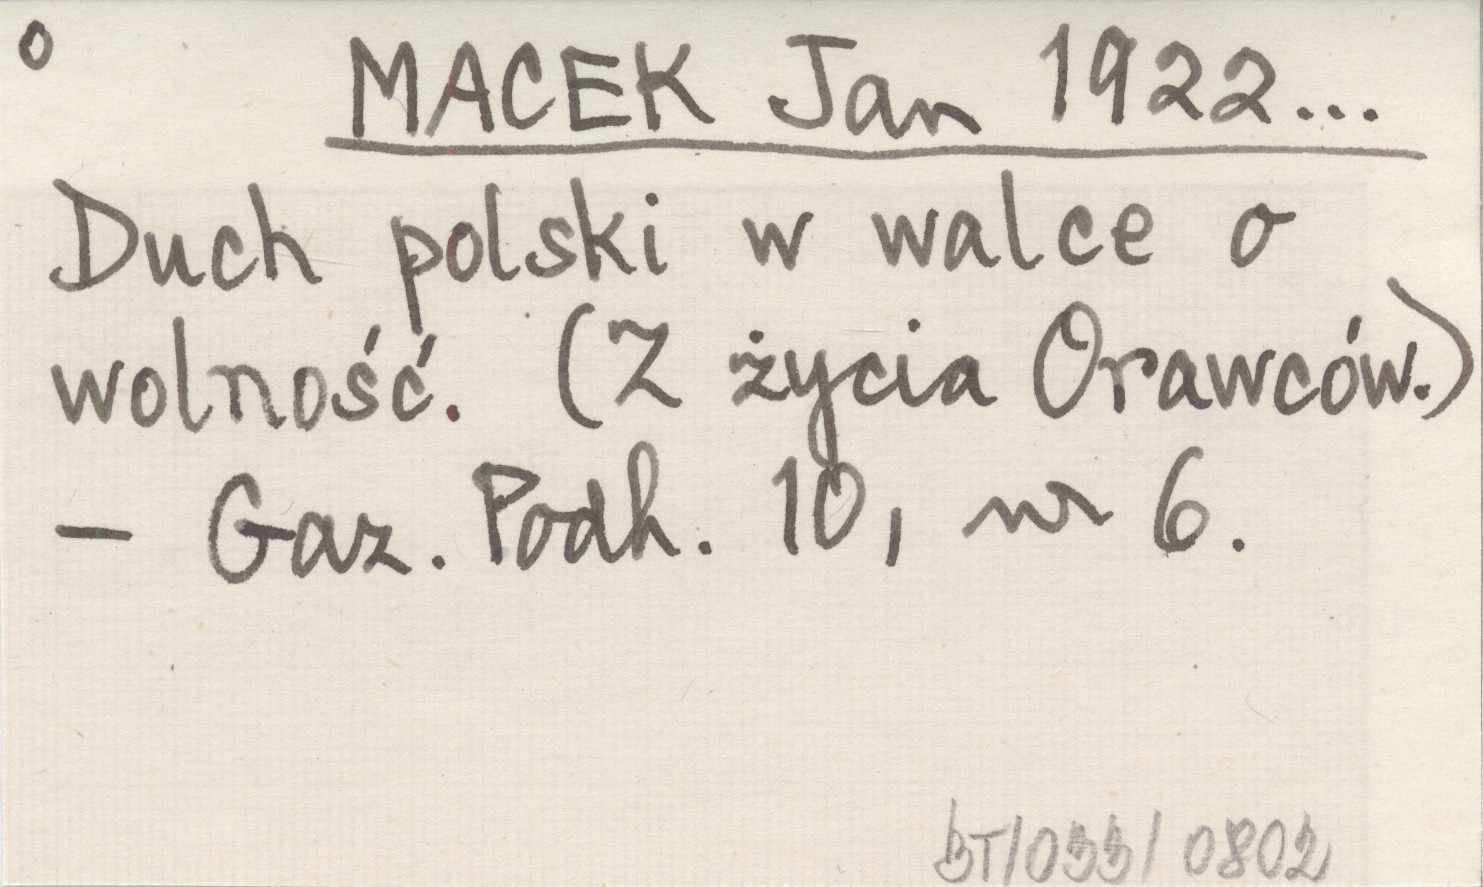 o
MACEK Jan 1922...
Duch polski w walce o
wolność. (Z życia Orawców.)
— Gaz. Podh. 10, nr 6.
BT/033/0802